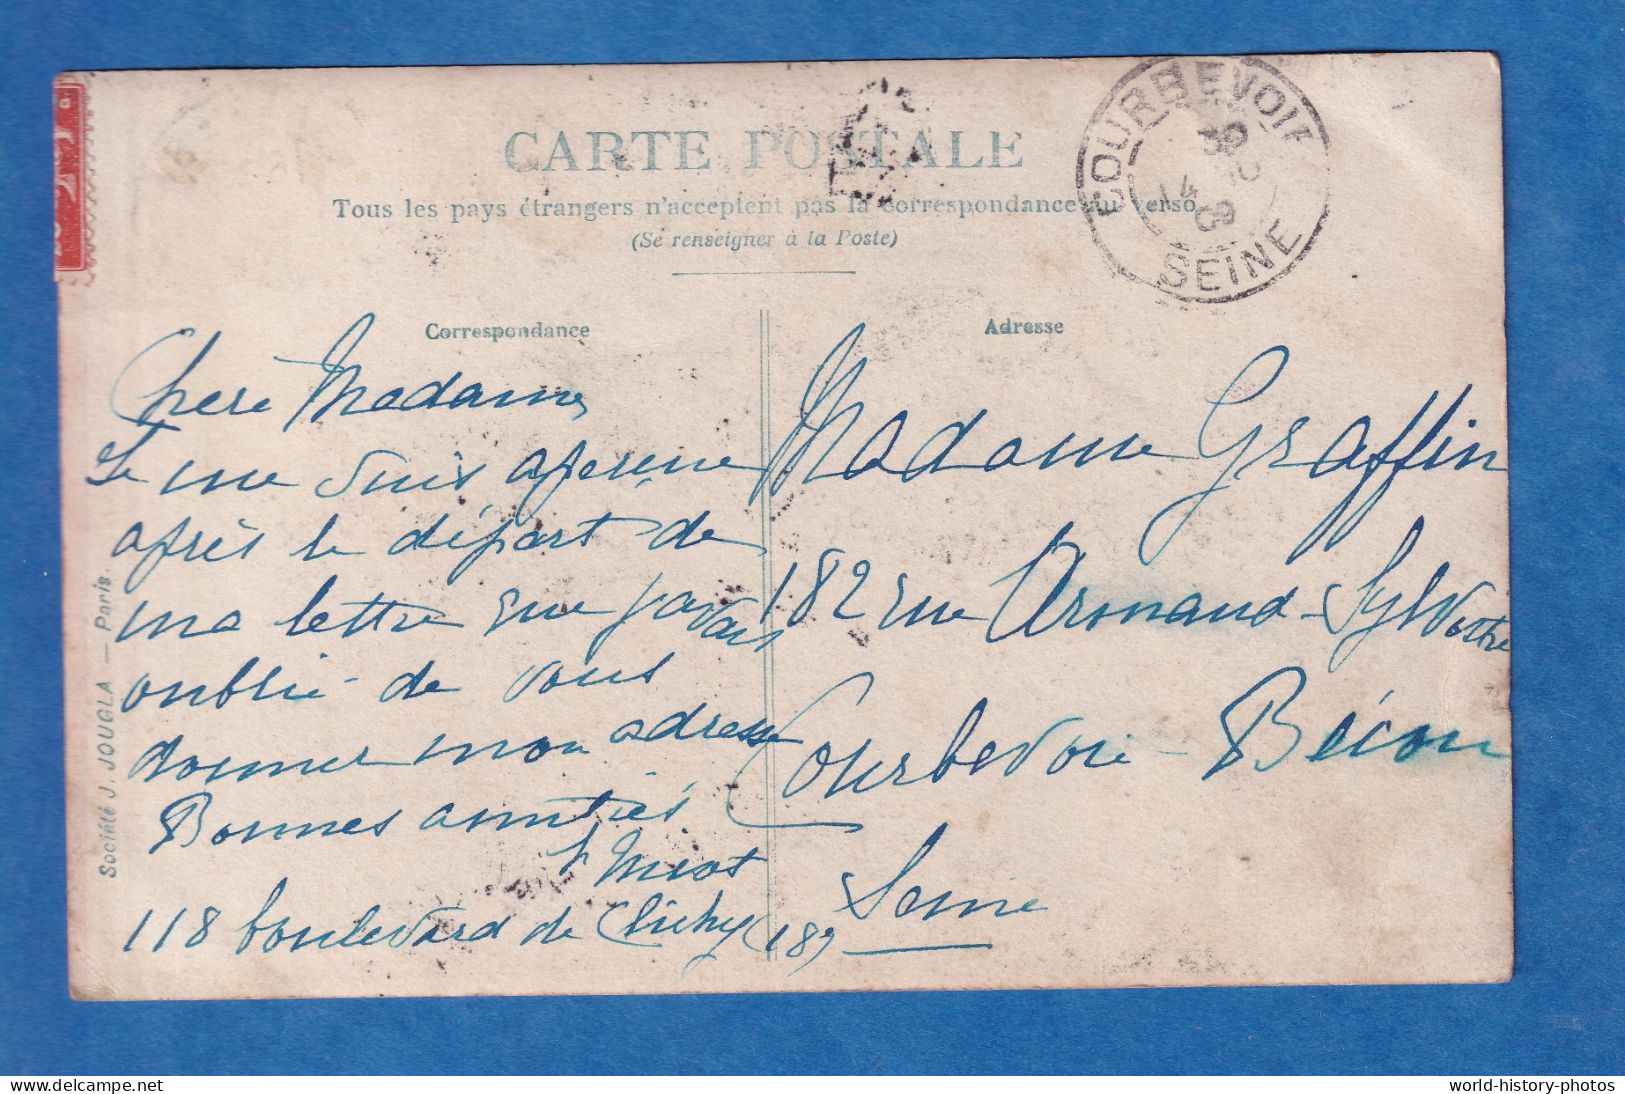 CARTE POSTALE
Tous les pays étrangers n'acceptent pas la correspondance au verso
(Se renseigner à la Poste)
COURBEVOIE
SEINE
Correspondance
Adresse
Chère Madame
Je me suis aperçue
après le départ de
ma lettre que j'avais
oublié de vous
donner mon adresse
Bonnes amitiés
118 boulevard de Clichy (18e)
Madame Graffin
182 rue Armand-Sylvestre
Courbevoie - Bécon
Seine
Société J. JOUGLA — Paris.
delcampe.net
world-history-photos